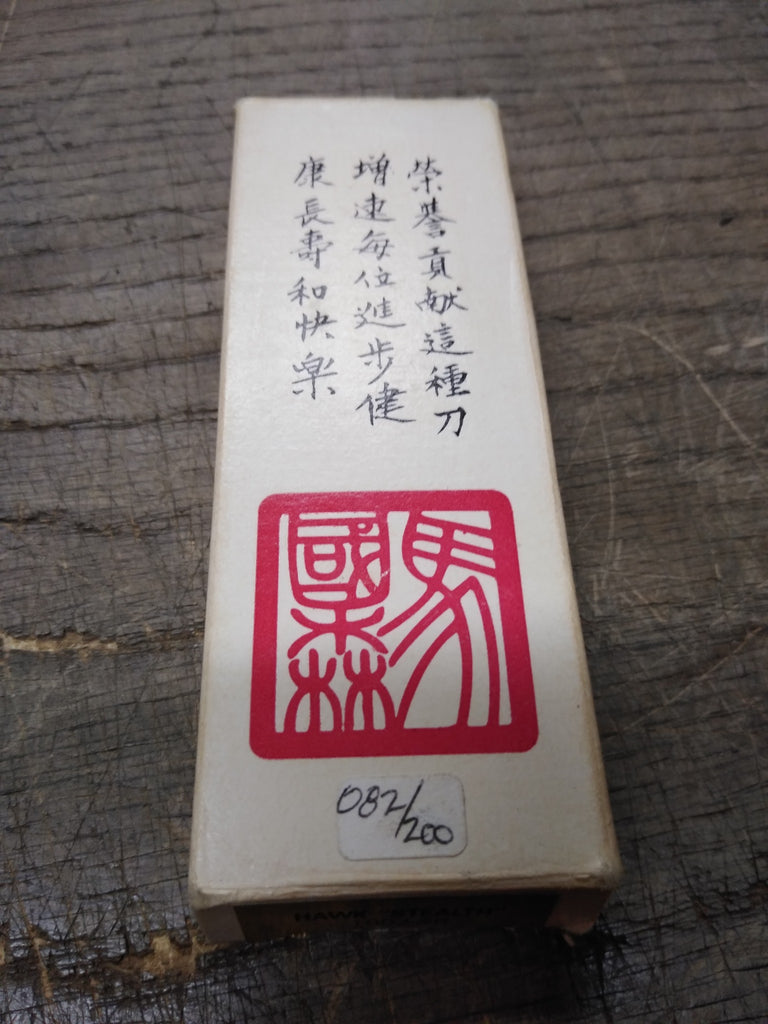 榮譽貢献這種刀
增速每位進步健
康長壽和快樂
馬國森
082/200
HAWK "STEALTH"